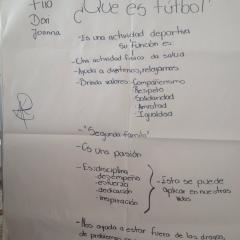 Fito
Dori
Joanna
¿Que es fútbol?
-Es una actividad deportiva
su función es:
-Una actividad física da salud
-Ayuda a divertirnos, relajarnos
-Brinda valores: Compañerismo
Respeto
Solidaridad
Amistad
Igualdad
-"Segunda familia"
-Es una pasión
-Es: disciplina
-desempeño
-esfuerzo
-dedicación
-inspiración
-Esto se puede
aplicar en nuestras
vidas
-Nos ayuda a estar fuera de las drogas
de problemas